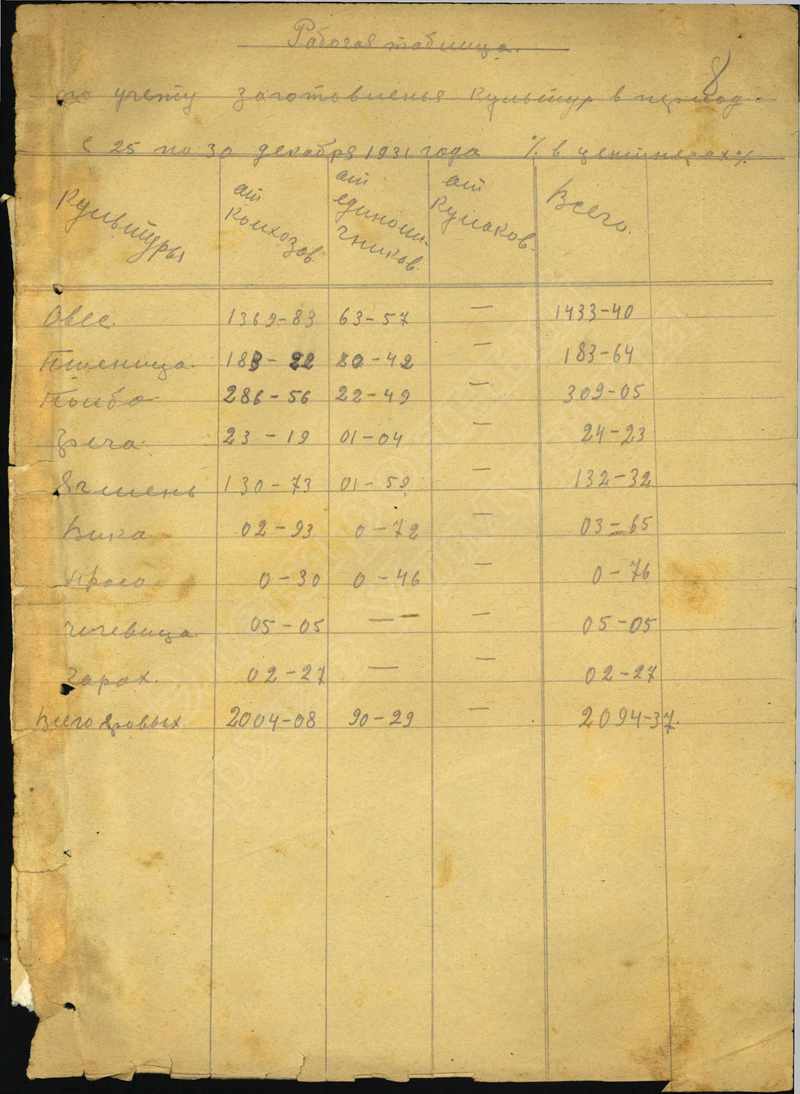 Рабочая таблица.
8
по учету заготовленья культур в период.
с 25 по 30 декабря 1931 года % в центнерах %
Культуры от колхозов от единоли-чников. от кулаков. Всего.
Овес. 1369-83 63-57 — 1433-40
Пшеница. 183-22 20-42 — 183-64
Полба 286-56 22-49 — 309-05
Греча. 23-19 01-04 — 24-23
Ячмень 130-73 01-59 — 132-32
Вика 02-93 0-72 — 03-65
Просо 0-30 0-46 — 0-76
Чечевица 05-05 — — — 05-05
Гарах. 02-27 — — 02-27
Всего яровых 2004-08 90-29 — 2094-37.